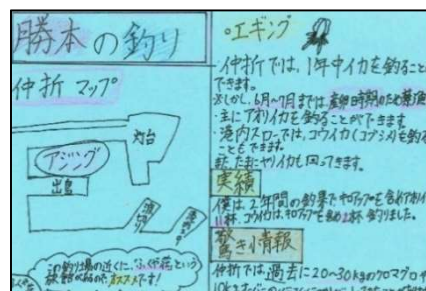 勝本の釣り
仲折 マップ
アジング
灯台
出島
波切り
この釣り場の近くに、
という
旅館があるので、オススメです!
エギング
・仲折では、1年中イカを釣ること
できます。
※しかし、6月~7月までは産卵時期のため
・主にアオリイカを釣ることができます
・港内スローでは、コウイカ(コブシメ)を釣る
こともできます。
たまにヤリイカも回ってきます。
実績
僕は、2年間の釣果でキロアップを含めアオリイ
杯、コウイカは、キロアップを含め2杯釣りました。
驚き情報
仲折では、過去に20~30kgのクロマグロや